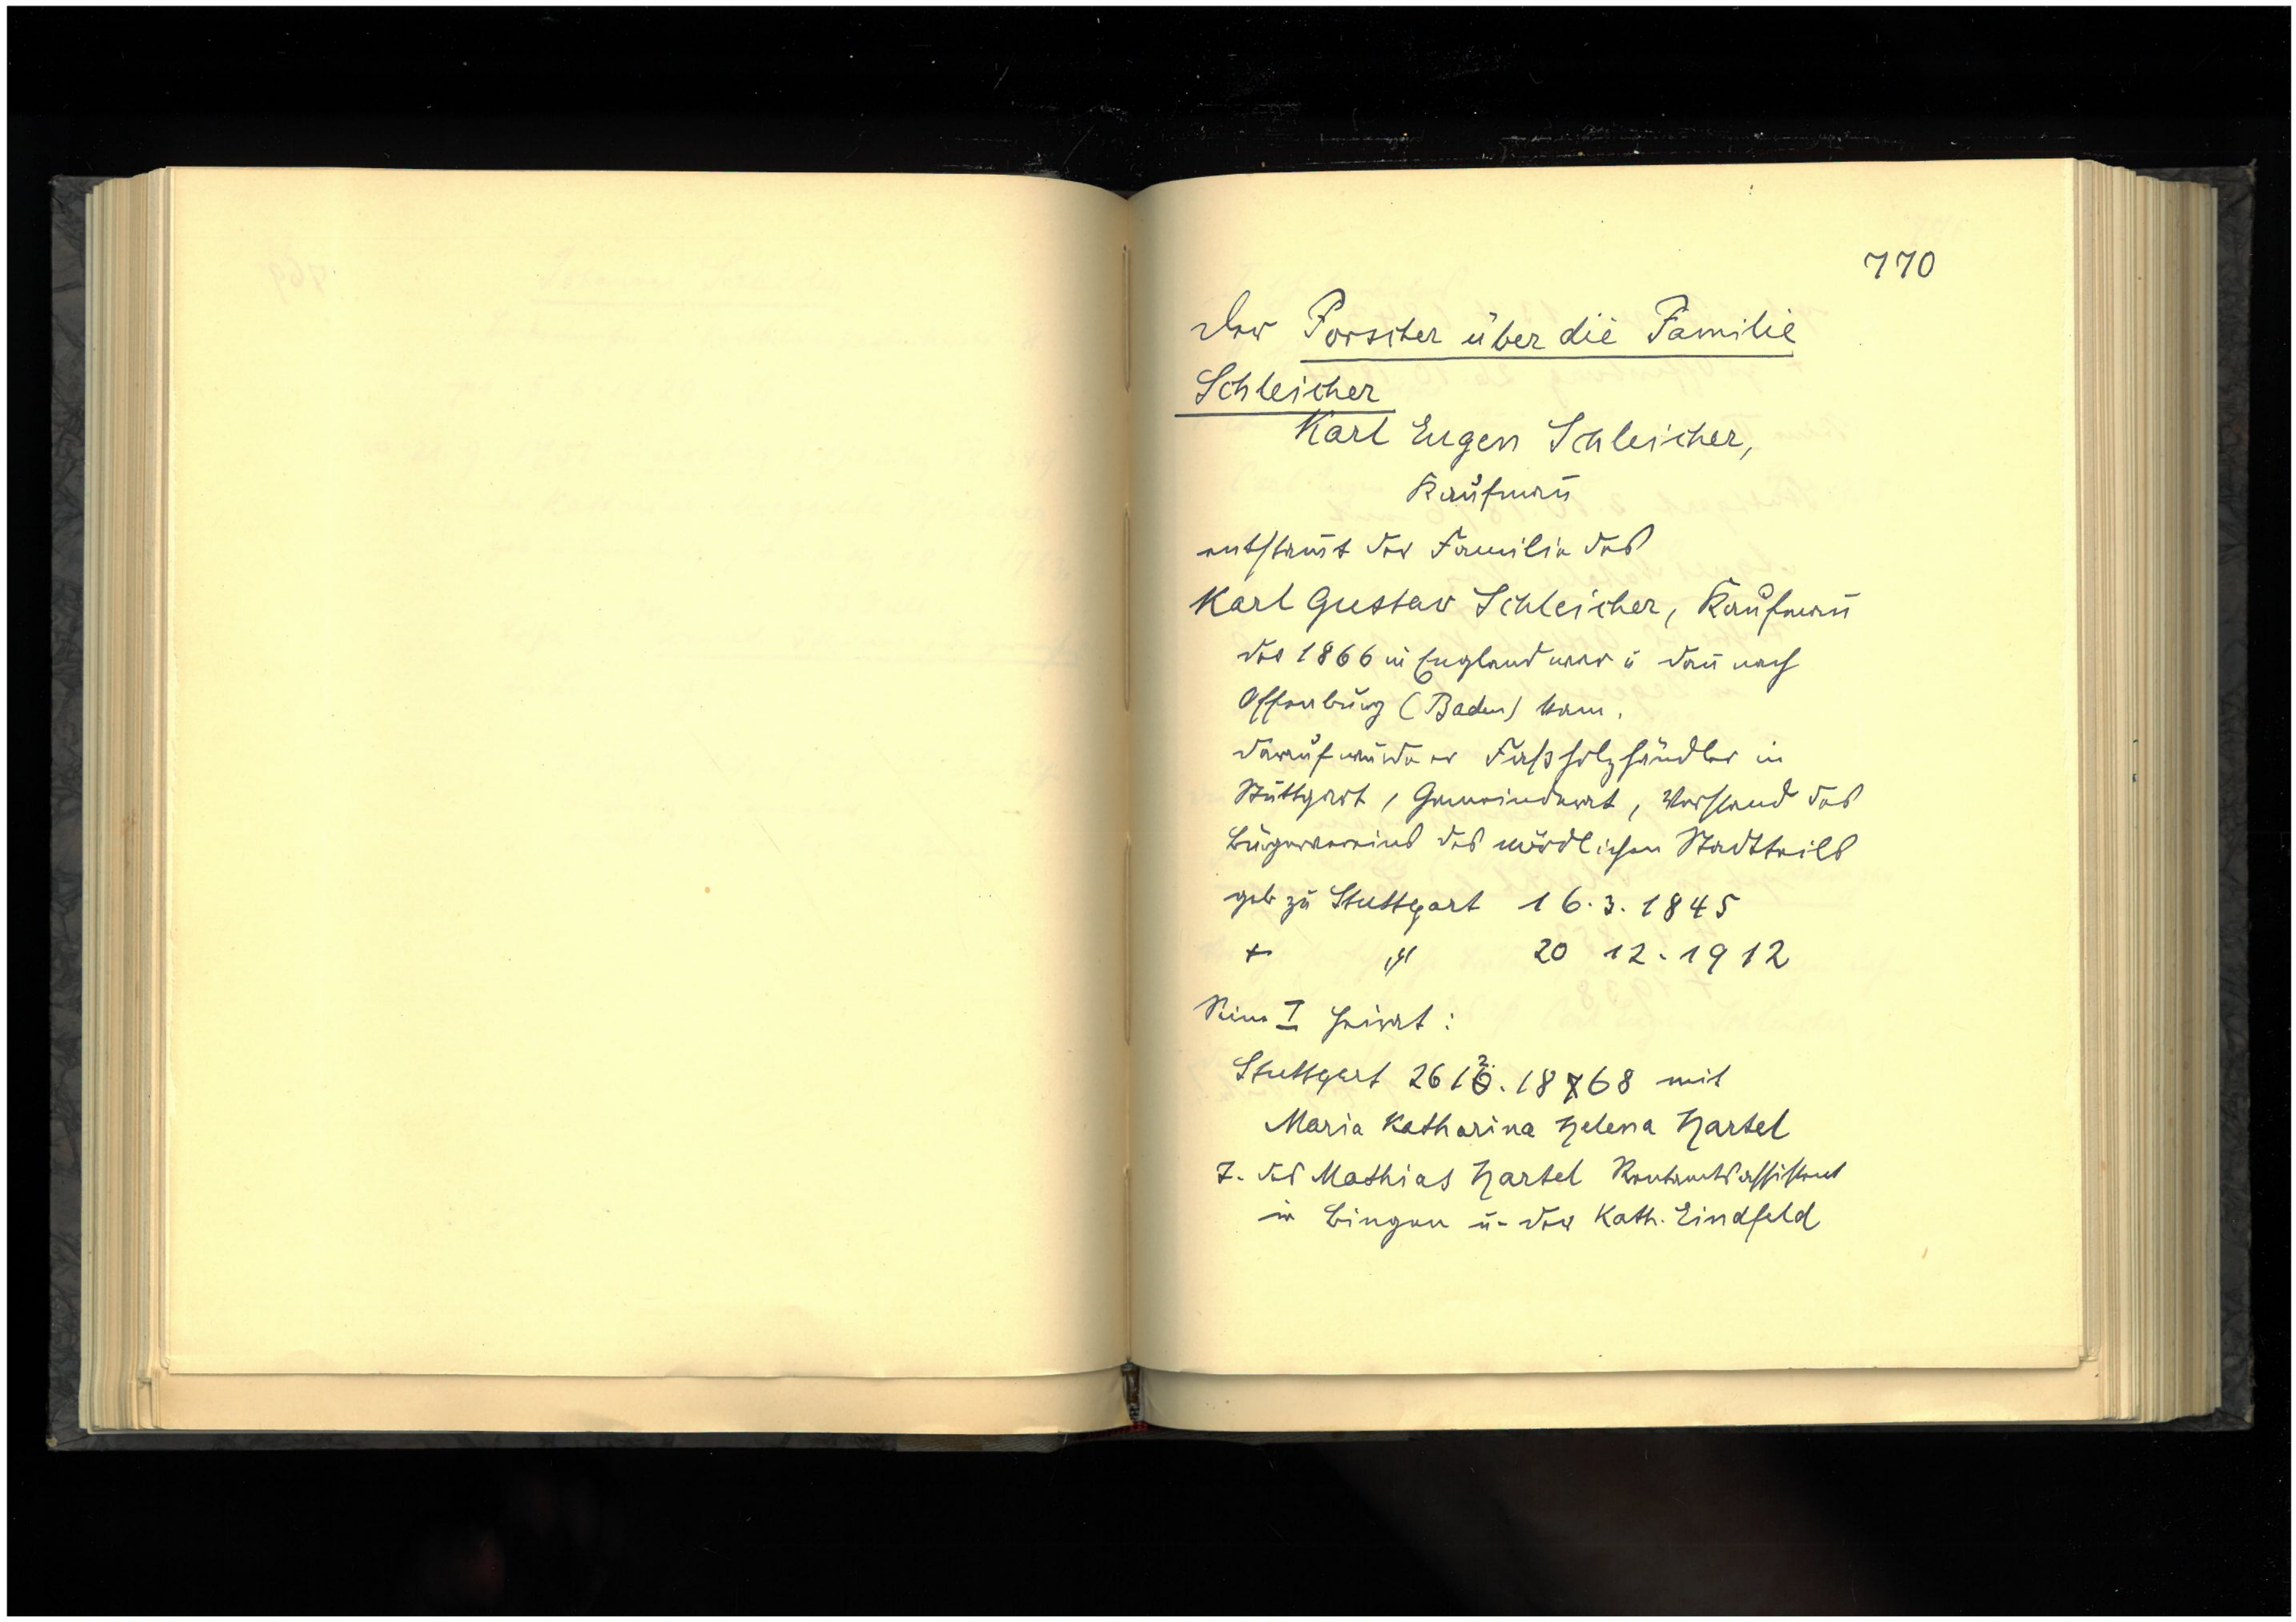 770
Der Forscher über die Familie
Schleicher
Karl Eugen Schleicher,
Kaufmañ
entstam̃t der Familie des
Karl Gustav Schleicher, Kaufmañ
der 1866 in England war u dañ nach
Offenburg (Baden) kam.
darauf wurde er Faßholzhändler in
Stuttgart, Gemeinderat, Vorstand des
Bürgervereins des nördlichen Stadtteils
geb zu Stuttgart 16.3.1845
+ " 20 12.1912
Seine I Heirat:
Stuttgart 26 12.1868 mit
Maria Katharina Helena Hartel
T. des Mathias Hartel Rentamtsassistent
in Bingen u. der Kath. Eindfeld